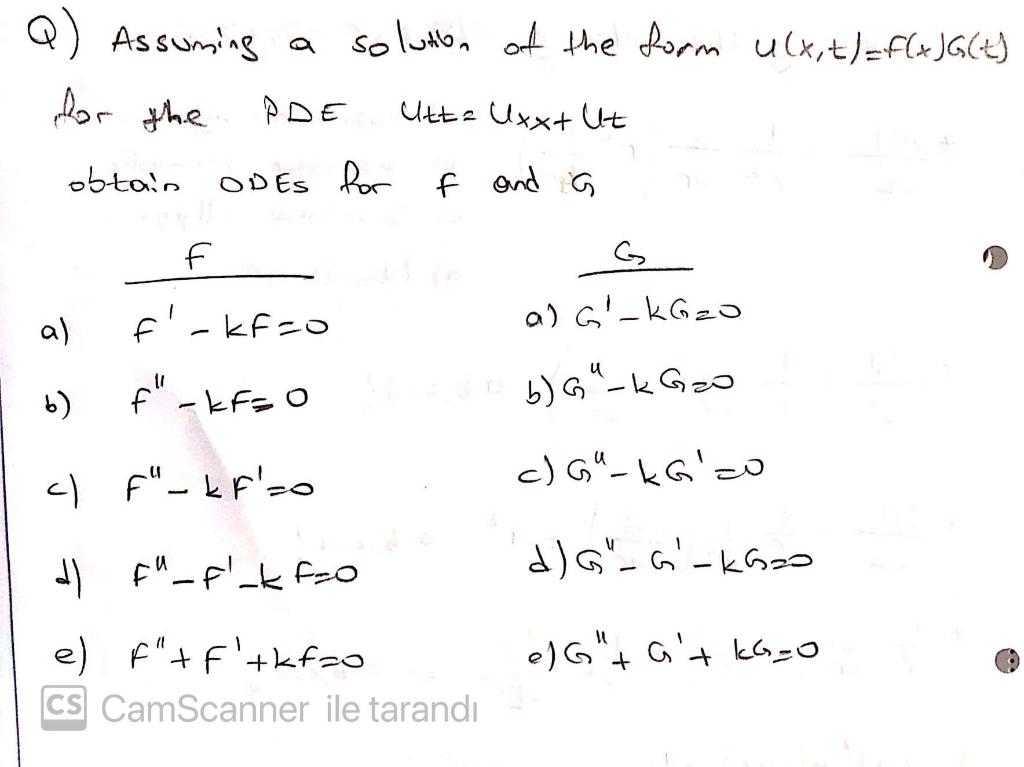 Q) Assuming a solution of the form u(x,t)=F(x)G(t)
for the PDE Utt = Uxx + Ut
obtain ODEs for F and G
F G
a) F' - kF = 0 a) G' - kG = 0
b) F" - kF = 0 b) G" - kG = 0
c) F" - kF' = 0 c) G" - kG' = 0
d) F" - F' - kF = 0 d) G" - G' - kG = 0
e) F" + F' + kF = 0 e) G" + G' + kG = 0
CS CamScanner ile tarandı